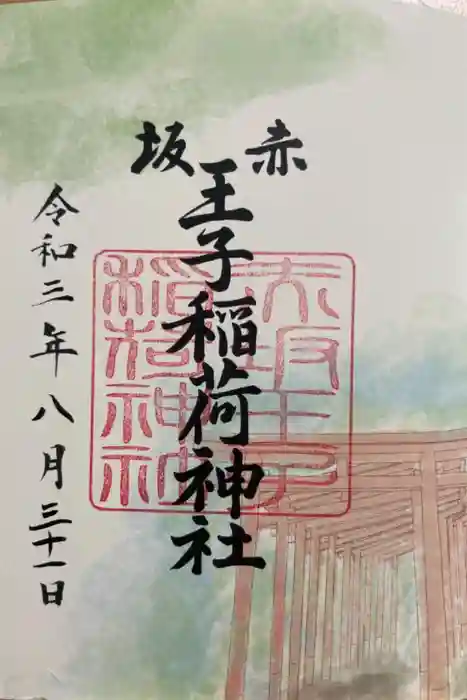 赤坂
王子稲荷神社
令和三年八月三十一日
赤坂王子
稲荷神社